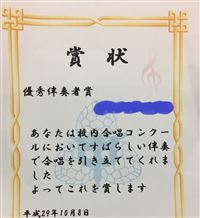 賞状
優秀伴奏者賞
あなたは校内合唱コンクー
ルにおいてすばらしい伴奏
で合唱を引き立ててくれま
した
よってこれを賞します
平成29年10月8日